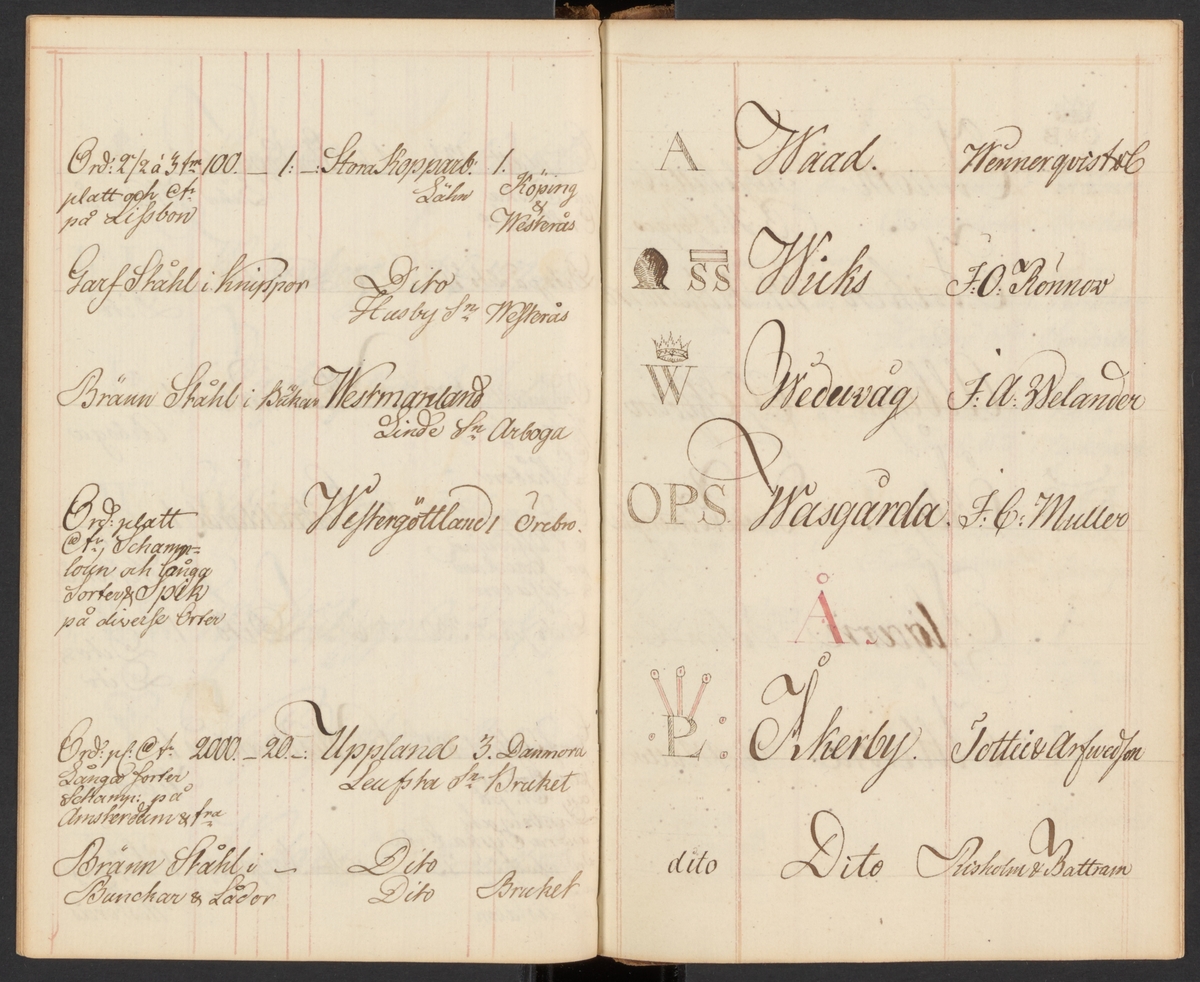 Ord: 2 1/2 á 3 tm 100. — 1: —: Stora Kopparb: 1.
platt och Ctr Lähn Köping
på Lissbon & Westerås
Garf Ståhl i Knippor Dito
Husby Sn Westerås
Bränn Ståhl i Westmanland
Linde Sn Arboga
Ord: platt Westergöttland 1 Örebro.
Ctr, Schamp=
loun och långa
Sorter & Spik
på diverse Orter
Ord: pl: Ctr 2000. — 20. —: Uppland 3. Dannora
Långa Sorter Leufsta Sn Bruket
& Schamp: på
Amsterdam & fra
Bränn Ståhl i — Dito
Bunckar & Lådor Dito Bruket
A Waad. Wennerqvist &C
SS Wicks F. O. Rönnow
W Wedewåg F. A: Welander
OPS Wasgårda. F: C: Muller
Å.
·P: Åkerby. Tottie & Arfwedson
dito Dito Risholm & Battram